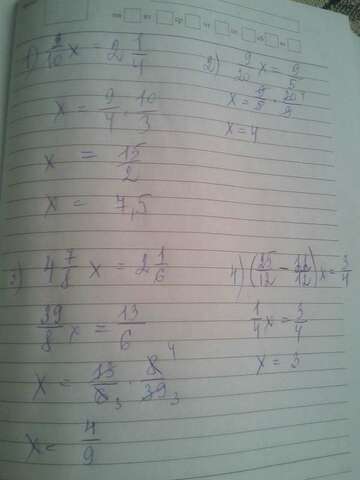 1) 3/10 x = 2 1/4
x = 9/4 · 10/3
x = 15/2
x = 7,5
2) 9/20 x = 9/5
x = 9/5 · 20/9
x = 4
3) 4 7/8 x = 2 1/6
39/8 x = 13/6
x = 13/6 3 · 8 4/39 3
x = 4/9
4) (25/12 - 22/12) x = 3/4
1/4 x = 3/4
x = 3